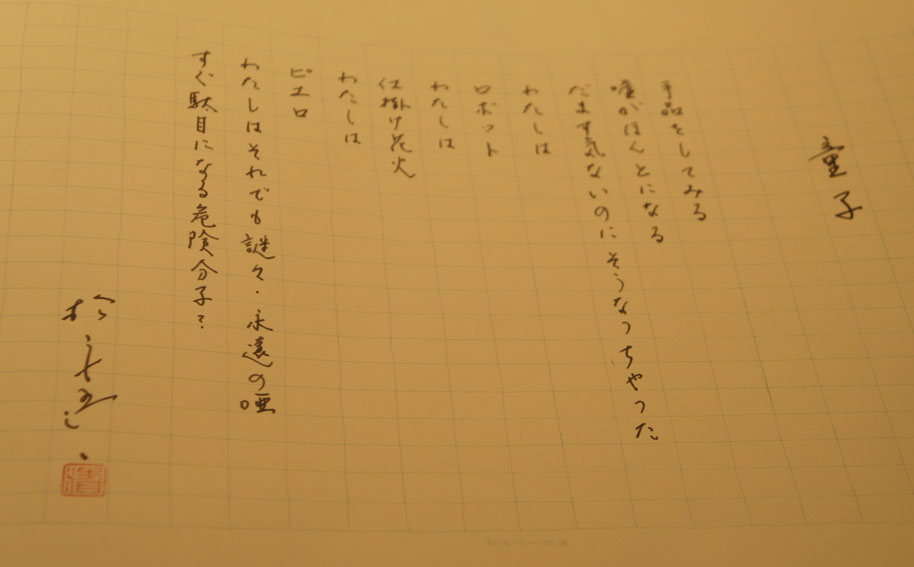 童子
手品をしてみる
嘘がほんとになる
だます気ないのにそうなっちゃった
わたしは
ロボット
わたしは
仕掛け花火
わたしは
ピエロ
わたしはそれでも謎々・永遠の唖
すぐ駄目になる危険分子?